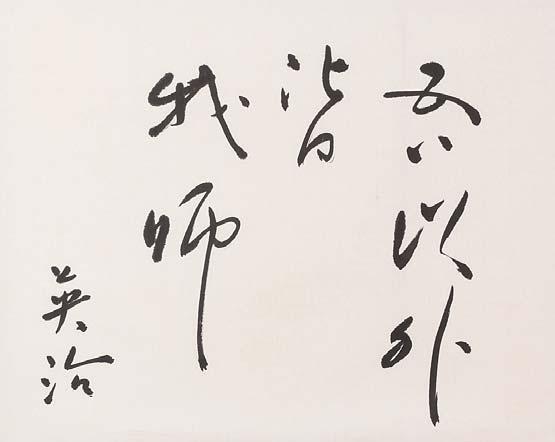 吾以外
皆
我師
英治